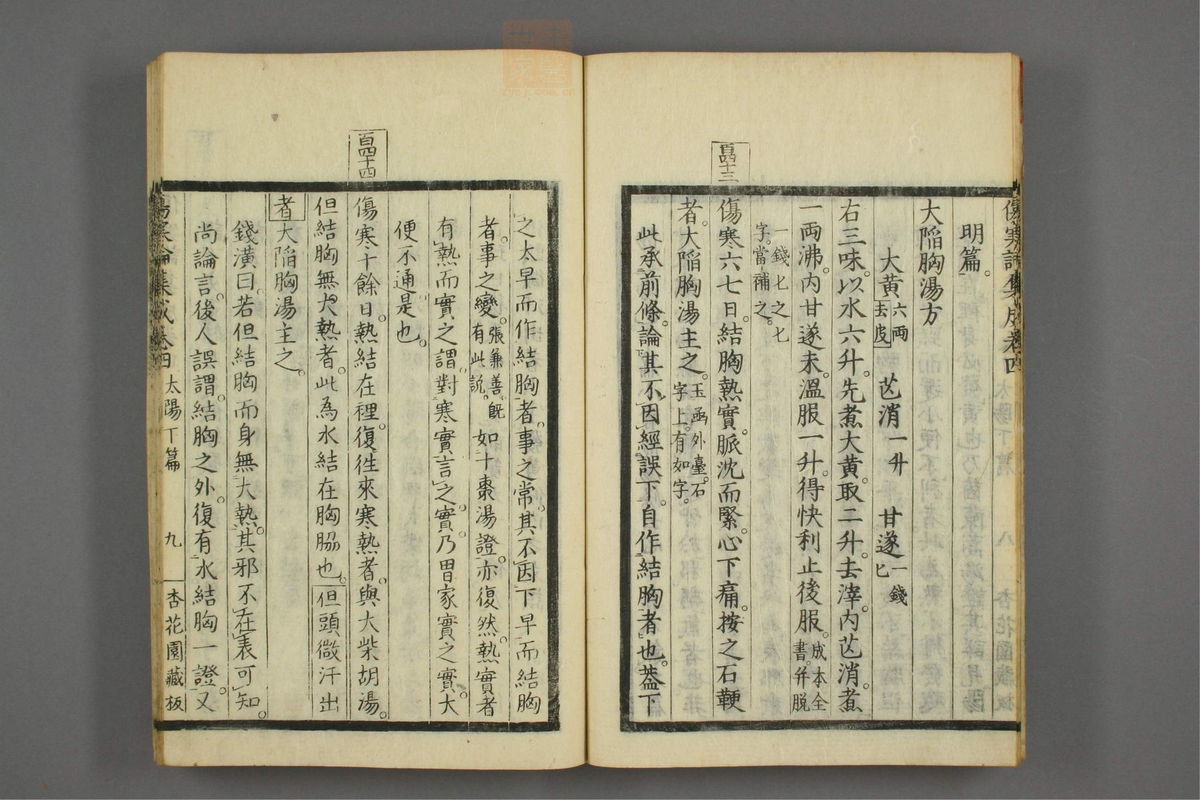 傷寒論集成卷四
明篇。
大陷胸湯方
大黃六兩去皮 芒消一升 甘遂一錢匕
右三味。以水六升。先煮大黃。取二升。去滓。內芒消。煮
一兩沸。內甘遂末。溫服一升。得快利止後服。成本全書。併脫
一錢匕之匕字。當補之。
百四十三
傷寒六七日。結胸熱實。脈沈而緊。心下痛。按之石鞕
者。大陷胸湯主之。玉函外臺。石字上。有如字。
此承前條。論其不因經誤下。自作結胸者也。蓋下
之太早而作結胸者。事之常。其不因下早而結胸
者。事之變。張兼善。既有此說。如十棗湯證。亦復然。熱實者
有熱而實之謂。對寒實言之。實乃胃家實之實。大
便不通是也。
百四十四
傷寒十餘日。熱結在裡。復往來寒熱者。與大柴胡湯。
但結胸無大熱者。此為水結在胸脇也。但頭微汗出
者大陷胸湯主之。
錢潢曰。若但結胸而身無大熱。其邪不在表可知。
尚論言。後人誤謂結胸之外。復有水結胸一證。又
傷寒論集成卷四 太陽下篇 九 杏花園藏板